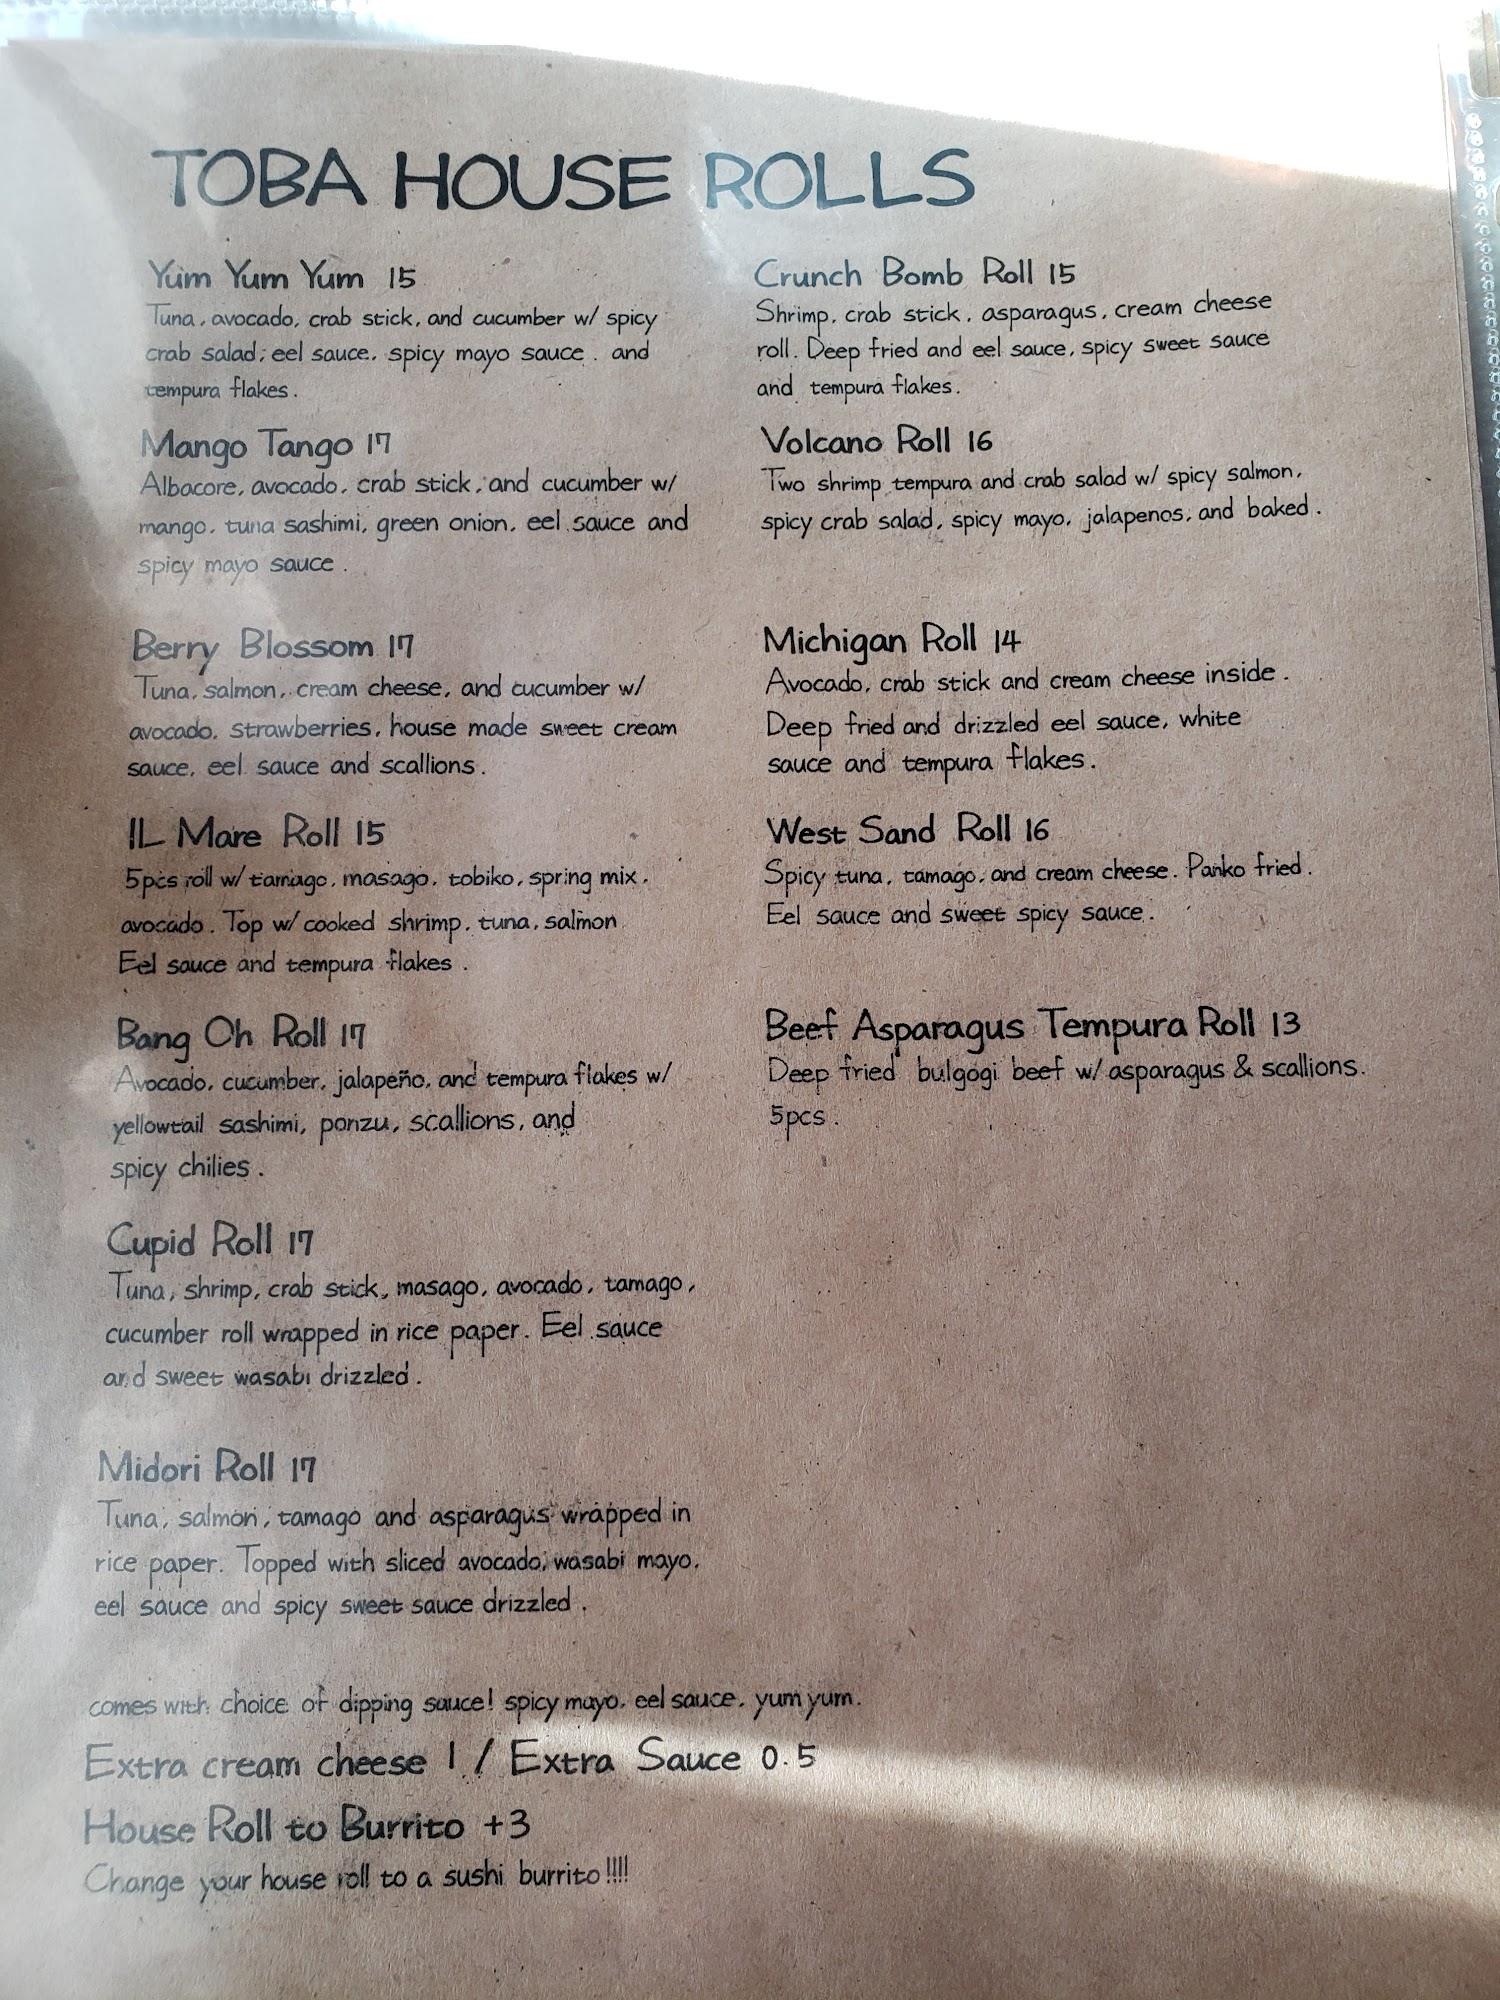 TOBA HOUSE ROLLS
Yum Yum Yum 15
Tuna, avocado, crab stick, and cucumber w/ spicy
crab salad, eel sauce, spicy mayo sauce, and
tempura flakes.
Mango Tango 17
Albacore, avocado, crab stick, and cucumber w/
mango, tuna sashimi, green onion, eel sauce and
spicy mayo sauce.
Berry Blossom 17
Tuna, salmon, cream cheese, and cucumber w/
avocado, strawberries, house made sweet cream
sauce, eel sauce and scallions.
IL Mare Roll 15
5pcs roll w/ tamago, masago, tobiko, spring mix,
avocado. Top w/ cooked shrimp, tuna, salmon
Eel sauce and tempura flakes.
Bang Oh Roll 17
Avocado, cucumber, jalapeño, and tempura flakes w/
yellowtail sashimi, ponzu, scallions, and
spicy chilies.
Cupid Roll 17
Tuna, shrimp, crab stick, masago, avocado, tamago,
cucumber roll wrapped in rice paper. Eel sauce
and sweet wasabi drizzled.
Midori Roll 17
Tuna, salmon, tamago and asparagus wrapped in
rice paper. Topped with sliced avocado, wasabi mayo,
eel sauce and spicy sweet sauce drizzled.
Crunch Bomb Roll 15
Shrimp, crab stick, asparagus, cream cheese
roll. Deep fried and eel sauce, spicy sweet sauce
and tempura flakes.
Volcano Roll 16
Two shrimp tempura and crab salad w/ spicy salmon,
spicy crab salad, spicy mayo, jalapenos, and baked.
Michigan Roll 14
Avocado, crab stick and cream cheese inside.
Deep fried and drizzled eel sauce, white
sauce and tempura flakes.
West Sand Roll 16
Spicy tuna, tamago, and cream cheese. Panko fried.
Eel sauce and sweet spicy sauce.
Beef Asparagus Tempura Roll 13
Deep fried bulgogi beef w/ asparagus & scallions.
5pcs.
comes with choice of dipping sauce! spicy mayo, eel sauce, yum yum.
Extra cream cheese 1 / Extra Sauce 0.5
House Roll to Burrito +3
Change your house roll to a sushi burrito!!!!